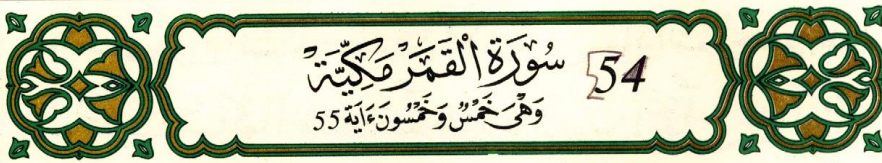 سُورَةُ الْقَمَرِ مَكِّيَّةٌ 54
وَهْىَ خَمْسٌ وَخَمْسُونَ ءَايَةً 55